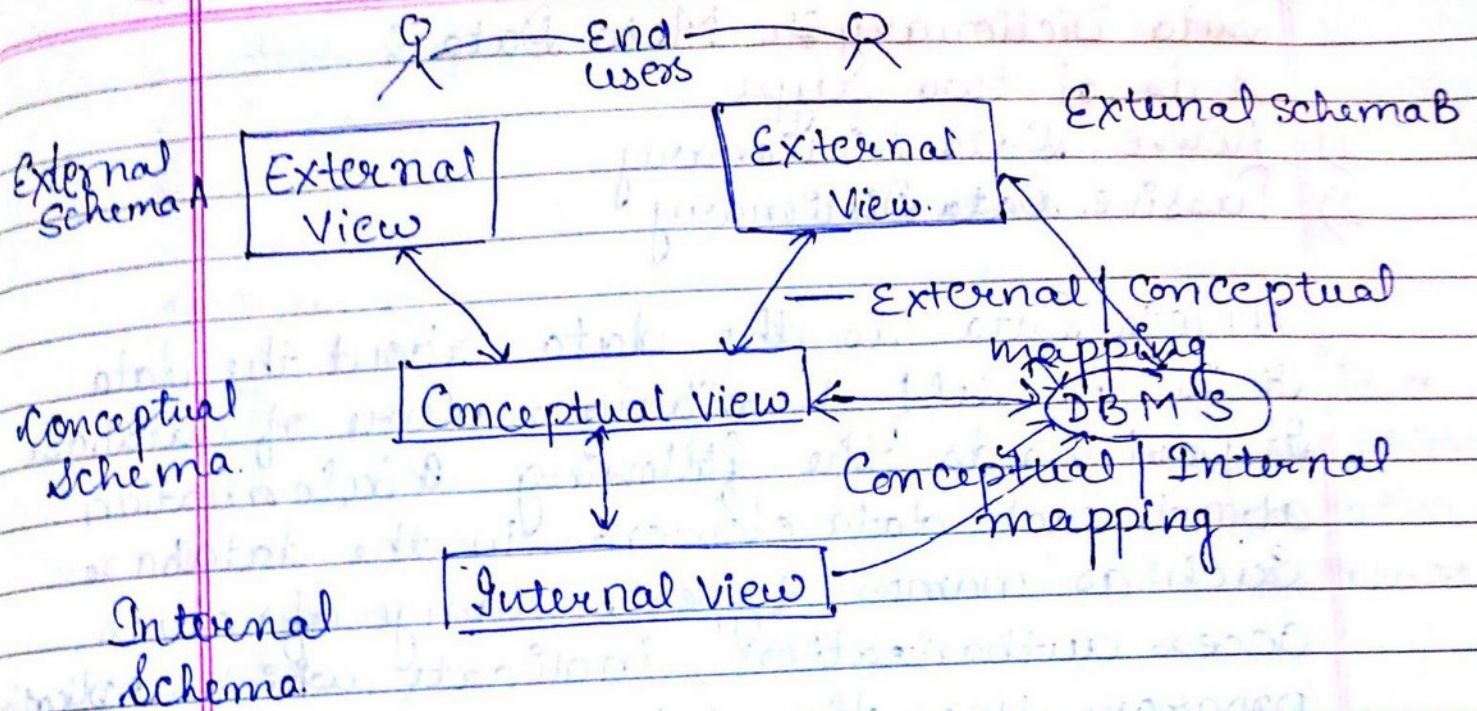 End
users
External Schema B
External
Schema A
External
View
External
View.
External | Conceptual
mapping
Conceptual
Schema.
Conceptual View
DBMS
Conceptual | Internal
mapping.
Internal View
Internal
Schema.